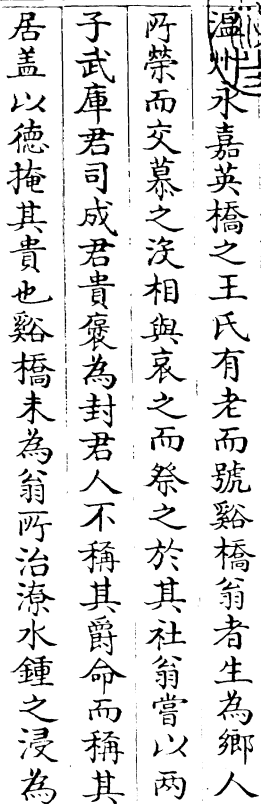 溫州永嘉英橋之王氏有老而號谿橋翁者生為鄉人
所榮而交慕之沒相與哀之而祭之於其社翁嘗以两
子武庫君司成君貴褒為封君人不稱其爵命而稱其
居盖以德掩其貴也谿橋未為翁所治潦水鍾之浸為